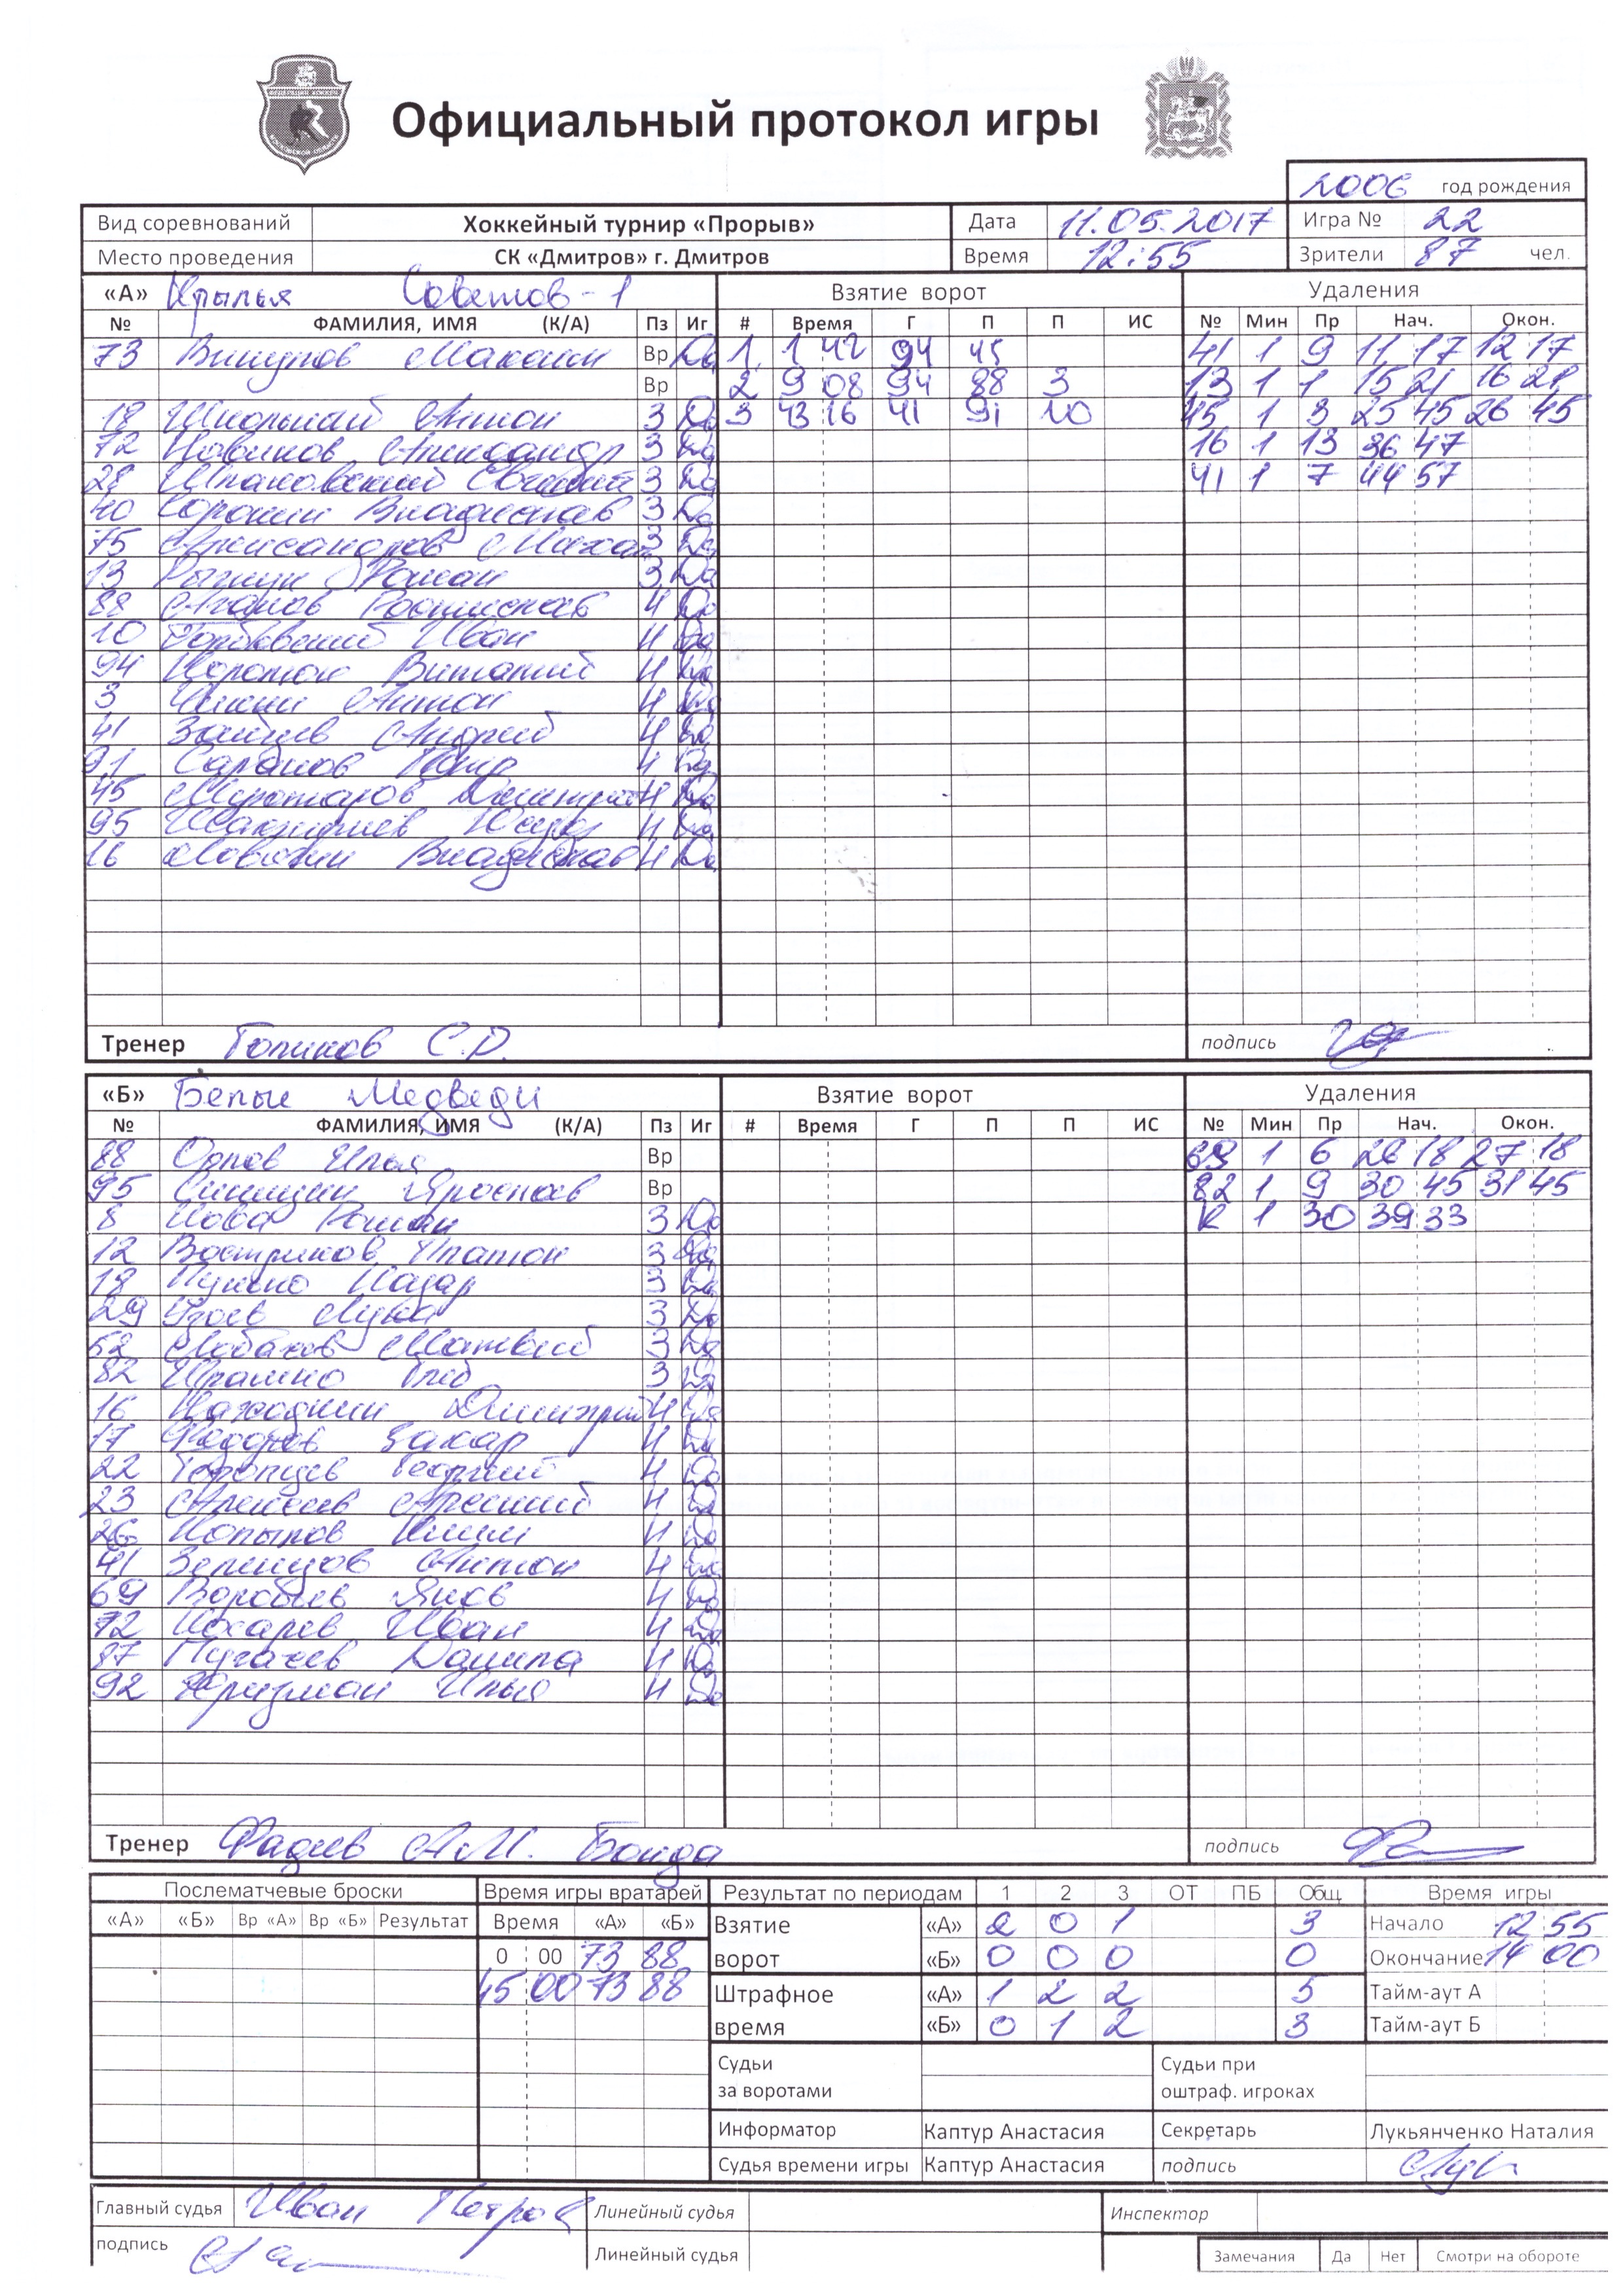 Официальный протокол игры
2006 год рождения
Вид соревнований Хоккейный турнир «Прорыв» Дата 11.05.2017 Игра № 22
Место проведения СК «Дмитров» г. Дмитров Время 12:55 Зрители 87 чел.
«А» Крылья Советов-1 Взятие ворот Удаления
№ ФАМИЛИЯ, ИМЯ (К/А) Пз Иг # Время Г П П ИС № Мин Пр Нач. Окон.
73 Максим Вр Да 1 1 42 94 45 41 1 9 11 17 12 17
Вр 2 9 08 94 88 3 13 1 1 15 21 16 21
18 Школьный Антон З Да 3 43 16 41 91 10 45 1 3 25 45 26 45
72 Новиков Александр З Да 16 1 13 36 47
28 Шпаковский Евгений З Да 41 1 7 44 57
40 Сорокин Владислав З Да
75 Александров З Да
13 Роман З Да
88 Агапов Ростислав Н Да
10 Иван Н Да
94 Короток Виталий Н Да
3 Антон Н Да
41 Зайцев Андрей Н Да
91 Н Да
45 Дмитрий Н Да
95 Н Да
16 Владислав Н Да
Тренер Голиков С.Д. подпись
«Б» Белые Медведи Взятие ворот Удаления
№ ФАМИЛИЯ, ИМЯ (К/А) Пз Иг # Время Г П П ИС № Мин Пр Нач. Окон.
88 Орлов Илья Вр 69 1 6 26 18 27 18
95 Синицин Ярослав Вр 82 1 9 30 45 31 45
8 Кова Роман З Да К 1 30 39 33
12 Востриков Платон З Да
18 Назар З Да
29 Лука З Да
52 Лобанов Матвей З Да
82 Глеб З Да
16 Находкин Дмитрий Н Да
17 Федоров Захар Н Да
22 Торопцев Георгий Н Да
23 Алексеев Арсений Н Да
26 Копылов Ким Н Да
41 Зеленцов Антон Н Да
69 Воробьев Яков Н Да
72 Кохарев Иван Н Да
87 Пугачев Данила Н Да
92 Кризман Илья Н Да
Тренер Фадеев А.М. Бонда подпись
Послематчевые броски Время игры вратарей Результат по периодам 1 2 3 ОТ ПБ Общ. Время игры
«А» «Б» Вр «А» Вр «Б» Результат Время «А» «Б» Взятие «А» 2 0 1 3 Начало 12 55
0 00 73 88 ворот «Б» 0 0 0 0 Окончание 14 00
45 00 73 88 Штрафное «А» 1 2 2 5 Тайм-аут А
время «Б» 0 1 2 3 Тайм-аут Б
Судьи Судьи при
за воротами оштраф. игроках
Информатор Каптур Анастасия Секретарь Лукьянченко Наталия
Судья времени игры Каптур Анастасия подпись
Главный судья Иван Петров Линейный судья Инспектор
подпись Линейный судья Замечания Да Нет Смотри на обороте